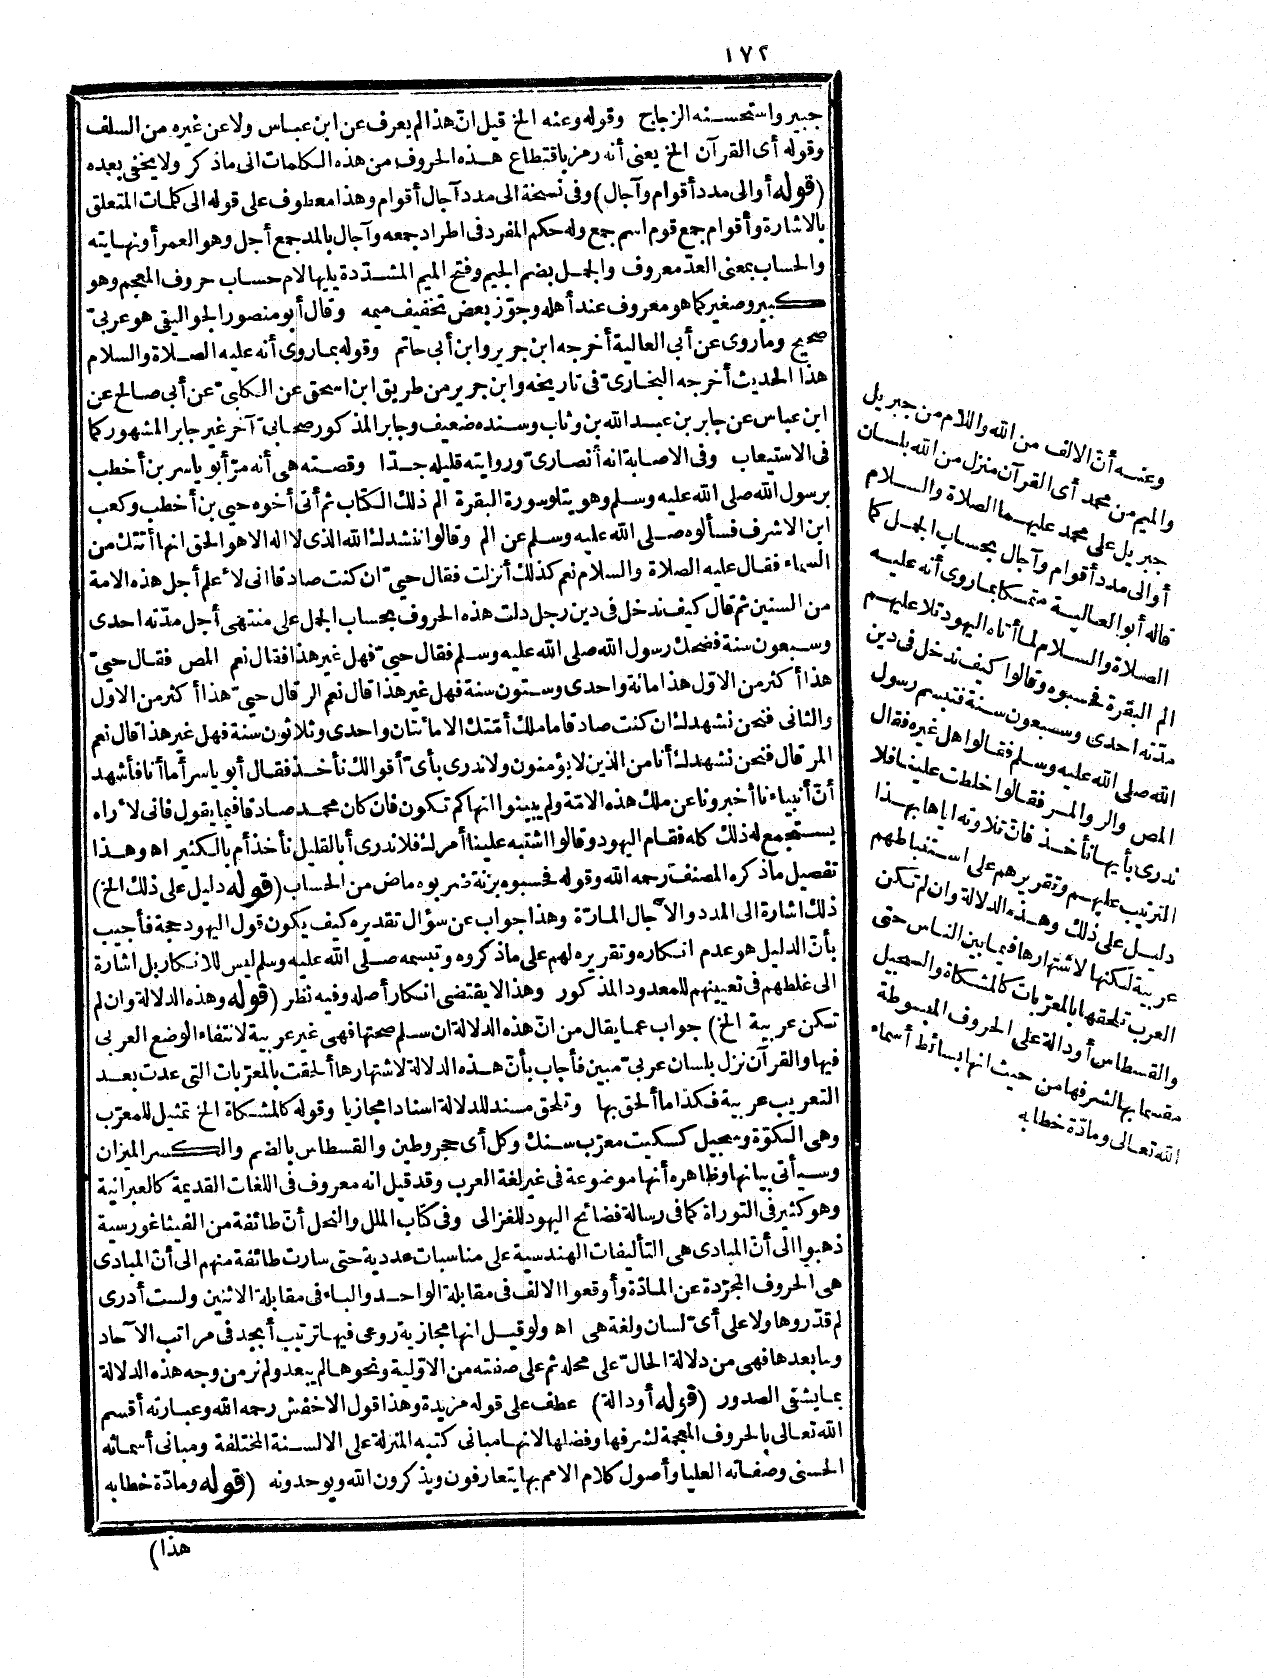 ١٧٢
جبير واستحسنه الزجاج وقوله وعنه الخ قيل انّ هذا لم يعرف عن ابن عباس ولا عن غيره من السلف
وقوله أى القرآن الخ يعنى أنه رمز باقتطاع هذه الحروف من هذه الكلمات الى ماذكر ولا يخفى بعده
(قوله أو الى مدد أقوام وآجال) وفى نسخة الى مدد آجال أقوام وهذا معطوف على قوله الى كلمات المتعلق
بالاشارة وأقوام جمع قوم اسم جمع وله حكم المفرد فى اطراد جمعه وآجال بالمد جمع أجل وهو العمر أو نهايته
والحساب بمعنى العدّ معروف والجمل بضم الجيم وفتح الميم المشدّدة يليها لام حساب حروف المعجم وهو
كبير وصغير كما هو معروف عند أهله وجوّز بعض تخفيف ميمه وقال أبو منصور الجواليقى هو عربىّ
صحيح وماروى عن أبى العالية أخرجه ابن جرير وابن أبى حاتم وقوله بماروى أنه عليه الصلاة والسلام
هذا الحديث أخرجه البخارىّ فى تاريخه وابن جرير من طريق ابن اسحق عن الكلبىّ عن أبى صالح عن
ابن عباس عن جابر بن عبد الله بن وثاب وسنده ضعيف وجابر المذكور صحابىّ آخر غير جابر المشهور كما
فى الاستيعاب وفى الاصابة انه أنصارىّ وروايته قليله جدّا وقصته هى أنه مرّ أبو ياسر بن أخطب
برسول الله صلى الله عليه وسلم وهو يتلو سورة البقرة الم ذلك الكتاب ثم أتى أخوه حيى بن أخطب وكعب
ابن الاشرف فسألوه صلى الله عليه وسلم عن الم وقالوا ننشدك الله الذى لا اله الا هو الحق انها أتتك من
السماء فقال عليه الصلاة والسلام نعم كذلك أنزلت فقال حيىّ ان كنت صادقا انى لأعلم أجل هذه الامة
من السنين ثم قال كيف ندخل فى دين رجل دلت هذه الحروف بحساب الجمل على منتهى أجل مدّته احدى
وسبعون سنة فضحك رسول الله صلى الله عليه وسلم فقال حيىّ فهل غير هذا فقال نعم المص فقال حيىّ
هذا أكثر من الاوّل هذا مائة واحدى وستون سنة فهل غير هذا قال نعم الر قال حيىّ هذا أكثر من الاوّل
والثانى فنحن نشهد لك ان كنت صادقا ماملك أمّتك الا مائتان واحدى وثلاثون سنة فهل غير هذا قال نعم
المر قال فنحن نشهد لك أنا من الذين لا يؤمنون ولا ندرى بأىّ أقوالك نأخذ فقال أبو ياسر أما أنا فأشهد
أنّ أنبياءنا أخبرونا عن ملك هذه الامّة ولم يبينوا انها كم تكون فان كان محمد صادقا فيما يقول فانى لأراه
يستجمع له ذلك كله فقام اليهود وقالوا اشتبه علينا أمرك فلا ندرى أبالقليل نأخذ أم بالكثير اه وهذا
تفصيل ماذكره المصنف رحمه الله وقوله فحسبوه بزنة ضربوه ماض من الحساب (قوله دليل على ذلك الخ)
ذلك اشارة الى المدد والآجال المارّة وهذا جواب عن سؤال تقديره كيف يكون قول اليهود حجة فأجيب
بأنّ الدليل هو عدم انكاره وتقريره لهم على ماذكروه وتبسمه صلى الله عليه وسلم ليس للانكار بل اشارة
الى غلطهم فى تعيينهم للمعدود المذكور وهذا لا يقتضى انكار أصله وفيه نظر (قوله وهذه الدلالة وان لم
تكن عربية الخ) جواب عما يقال من انّ هذه الدلالة ان سلم صحتها فهى غير عربية لانتفاء الوضع العربى
فيها والقرآن نزل بلسان عربىّ مبين فأجاب بأنّ هذه الدلالة لاشتهارها ألحقت بالمعرّبات التى عدت بعد
التعريب عربية فكذا ما ألحق بها وتلحق مسند للدلالة اسنادا مجازيا وقوله كالمشكاة الخ تمثيل للمعرّب
وهى الكوّة وسجيل كسكيت معرّب سنك وكل أى حجر وطين والقسطاس بالضم والكسر الميزان
وسيأتى بيانها وظاهره أنها موضوعة فى غير لغة العرب وقد قيل انه معروف فى اللغات القديمة كالعبرانية
وهو كثير فى التوراة كما فى رسالة فضائح اليهود للغزالى وفى كتاب الملل والنحل أنّ طائفة من الفيثاغورسية
ذهبوا الى أنّ المبادى هى التأليفات الهندسية على مناسبات عددية حتى سارت طائفة منهم الى أنّ المبادى
هى الحروف المجرّدة عن المادّة وأوقعوا الالف فى مقابلة الواحد والباء فى مقابلة الاثنين ولست أدرى
لم قدّروها ولا على أىّ لسان ولغة هى اه ولو قيل انها مجازية روعى فيها ترتيب أبجد فى مراتب الآحاد
وما بعدها فهى من دلالة الحالّ على محله ثم على صفته من الاوّلية ونحوها لم يبعد ولم نر من وجه هذه الدلالة
بما يشفى الصدور (قوله أو دالة) عطف على قوله مزيدة وهذا قول الاخفش رحمه الله وعبارته أقسم
الله تعالى بالحروف المعجمة لشرفها وفضلها لانها مبانى كتبه المنزلة على الالسنة المختلفة ومبانى أسمائه
الحسنى وصفاته العليا وأصول كلام الامم بها يتعارفون ويذكرون الله ويوحدونه (قوله ومادّة خطابه
هذا)
وعنه أنّ الالف من الله واللام من جبريل
والميم من محمد أى القرآن منزل من الله بلسان
جبريل على محمد عليهما الصلاة والسلام
أو الى مدد أقوام وآجال بحساب الجمل كما
قاله أبو العالية متمسكا بماروى أنه عليه
الصلاة والسلام لما أتاه اليهود تلا عليهم
الم البقرة فحسبوه وقالوا كيف ندخل فى دين
مدّته احدى وسبعون سنة فتبسم رسول
الله صلى الله عليه وسلم فقالوا هل غيره فقال
المص والر والمر فقالوا خلطت علينا فلا
ندرى بأيها نأخذ فانّ تلاوته اياها بهذا
الترتيب عليهم وتقريرهم على استنباطهم
دليل على ذلك وهذه الدلالة وان لم تكن
عربية لكنها لاشتهارها فيما بين الناس حتى
العرب تلحقها بالمعرّبات كالمشكاة والسجيل
والقسطاس أو دالة على الحروف المبسوطة
مقسما بها لشرفها من حيث انها بسائط أسماء
الله تعالى ومادّة خطابه